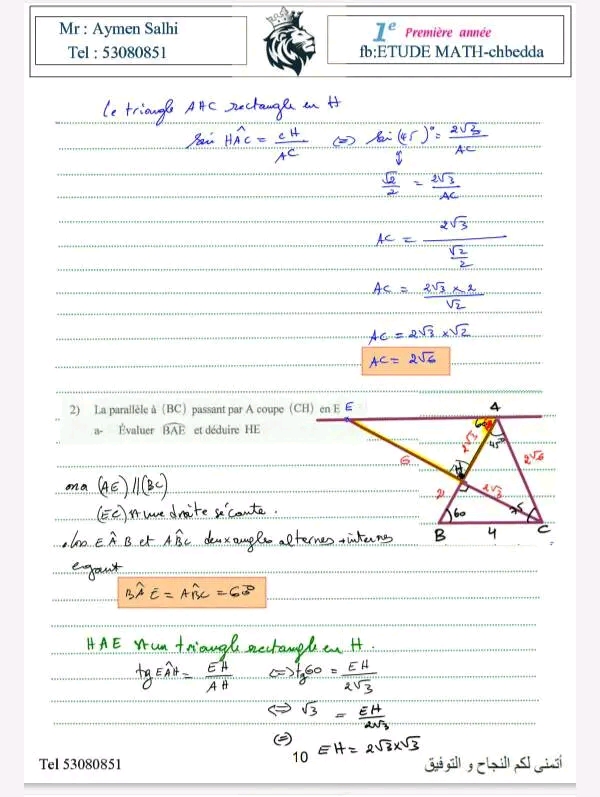 Mr : Aymen Salhi
Tel : 53080851
1e Première année
fb:ETUDE MATH-chbedda
Le triangle AHC rectangle en H
sin HÂC = CH/AC ⇔ sin(45)° = 2√3/AC
⇕
√2/2 = 2√3/AC
AC = 2√3/(√2/2)
AC = 2√3 × 2/√2
AC = 2√3 × √2
AC = 2√6
2) La parallèle à (BC) passant par A coupe (CH) en E
a- Évaluer BAE et déduire HE
E
A
60
45°
2√3
2√6
6
H
2
2√3
60
45
B
4
C
on a (AE) // (BC)
(EC) une droite sécante.
EÂB et AB̂C deux angles alternes internes
BÂE = AB̂C = 60°
HAE un triangle rectangle en H.
tg EÂH = EH/AH ⇔ tg 60 = EH/2√3
⇔ √3 = EH/2√3
⇔ EH = 2√3×√3
Tel 53080851
10
أتمنى لكم النجاح و التوفيق